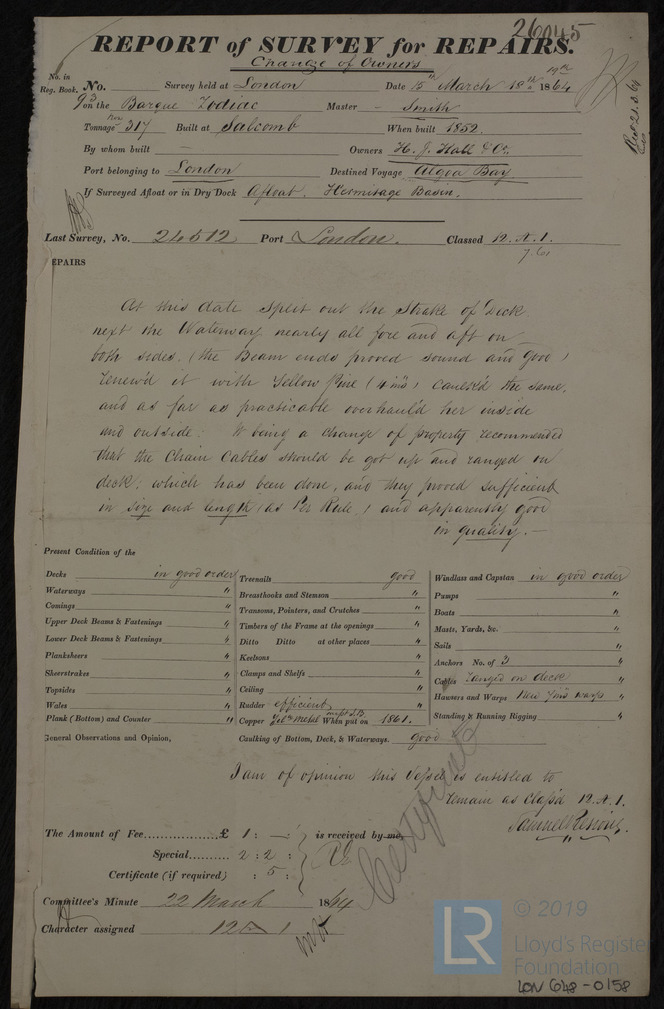 26045
REPORT of SURVEY for REPAIRS.
Change of Owners
No. in
Reg. Book. No. Survey held at London Date 15th March 18th 19th 1864
93 on the Barque Zodiac Master Smith
Tonnage 317 Built at Salcomb When built 1852.
By whom built — Owners H. J. Hall & Co.
Port belonging to London Destined Voyage Algoa Bay
If Surveyed Afloat or in Dry Dock Afloat. Hermitage Basin.
Last Survey, No. 24512 Port London. Classed 12. A. 1.
7.61
EPAIRS
At this date split out the Strake of Deck
next the Waterway nearly all fore and aft on
both sides. (the Beam ends proved sound and good)
renew'd it with Yellow Pine (4 ins) caulk'd the same,
and as far as practicable overhaul'd her inside
and outside: It being a change of property recommended
that the Chain Cables should be got up and ranged on
deck; which has been done, and they proved sufficient
in size and length (as Per Rule) and apparently good
in quality. —
Present Condition of the
Decks in good order Treenails good Windlass and Capstan in good order
Waterways " Breasthooks and Stemson " Pumps "
Comings " Transoms, Pointers, and Crutches " Boats "
Upper Deck Beams & Fastenings " Timbers of the Frame at the openings " Masts, Yards, &c. "
Lower Deck Beams & Fastenings " Ditto Ditto at other places " Sails "
Planksheers " Keelsons " Anchors No. of 3 "
Sheerstrakes " Clamps and Shelfs " Cables ranged on deck "
Topsides " Ceiling " Hawsers and Warps New warps "
Wales " Rudder efficient Standing & Running Rigging "
Plank (Bottom) and Counter " Copper Yel. Metal When put on 1861.
General Observations and Opinion, Caulking of Bottom, Deck, & Waterways. good
I am of opinion this Vessel is entitled to
remain as Class'd 12. A. 1.
Samuel
The Amount of Fee £ 1 : — : is received by me,
Special 2 : 2 :
Certificate (if required) : 5 :
Certificate
Committee's Minute 22 March 1864
Character assigned 12 A 1
LR
© 2019
Lloyd's Register
Foundation
LON 648-0158